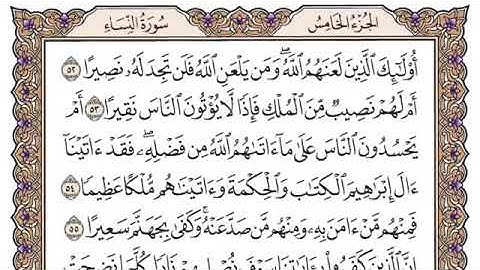 الجزء الخامس سورة النساء
أُوْلَٰٓئِكَ ٱلَّذِينَ لَعَنَهُمُ ٱللَّهُۖ وَمَن يَلْعَنِ ٱللَّهُ فَلَن تَجِدَ لَهُۥ نَصِيرًا ٥٢
أَمْ لَهُمْ نَصِيبٌ مِّنَ ٱلْمُلْكِ فَإِذًا لَّا يُؤْتُونَ ٱلنَّاسَ نَقِيرًا ٥٣ أَمْ
يَحْسُدُونَ ٱلنَّاسَ عَلَىٰ مَآ ءَاتَىٰهُمُ ٱللَّهُ مِن فَضْلِهِۦۖ فَقَدْ ءَاتَيْنَآ
ءَالَ إِبْرَٰهِيمَ ٱلْكِتَٰبَ وَٱلْحِكْمَةَ وَءَاتَيْنَٰهُم مُّلْكًا عَظِيمًا ٥٤
فَمِنْهُم مَّنْ ءَامَنَ بِهِۦ وَمِنْهُم مَّن صَدَّ عَنْهُۚ وَكَفَىٰ بِجَهَنَّمَ سَعِيرًا ٥٥
إِنَّ ٱلَّذِينَ كَفَرُوا۟ بِـَٔايَٰتِنَا سَوْفَ نُصْلِيهِمْ نَارًا كُلَّمَا نَضِجَتْ